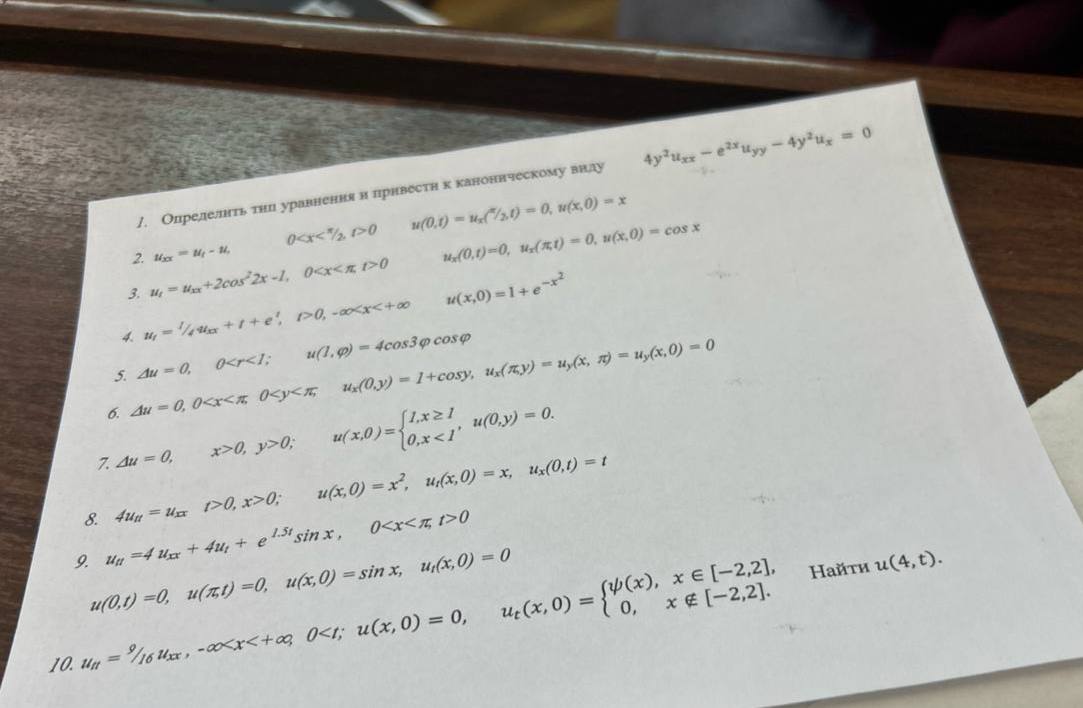 1. Определить тип уравнения и привести к каноническому виду 4y²uₓₓ − e²ˣu_yy − 4y²uₓ = 0
2. uₓₓ = uₜ - u, 0<x<π/2, t>0 u(0,t) = uₓ(π/2,t) = 0, u(x,0) = x
3. uₜ = uₓₓ+2cos²2x -1, 0<x<π, t>0 uₓ(0,t)=0, uₓ(π,t) = 0, u(x,0) = cos x
4. uₜ = 1/4 uₓₓ + t + eᵗ, t>0, -∞<x<+∞ u(x,0) = 1 + e^(−x²)
5. Δu = 0, 0<r<1; u(1,φ) = 4cos3φ cosφ
6. Δu = 0, 0<x<π, 0<y<π, uₓ(0,y) = 1+cosy, uₓ(π,y) = u_y(x, π) = u_y(x,0) = 0
7. Δu = 0, x>0, y>0; u(x,0) = {1, x ≥ 1; 0, x < 1, u(0,y) = 0.
8. 4uₜₜ = uₓₓ t>0, x>0; u(x,0) = x², uₜ(x,0) = x, uₓ(0,t) = t
9. uₜₜ =4 uₓₓ + 4uₜ + e^(1.5t) sin x, 0<x<π, t>0
u(0,t) =0, u(π,t) =0, u(x,0) = sin x, uₜ(x,0) = 0
10. uₜₜ = 9/16 uₓₓ, -∞<x<+∞, 0<t; u(x,0) = 0, uₜ(x,0) = {ψ(x), x ∈ [−2,2], 0, x ∉ [−2,2]. Найти u(4,t).